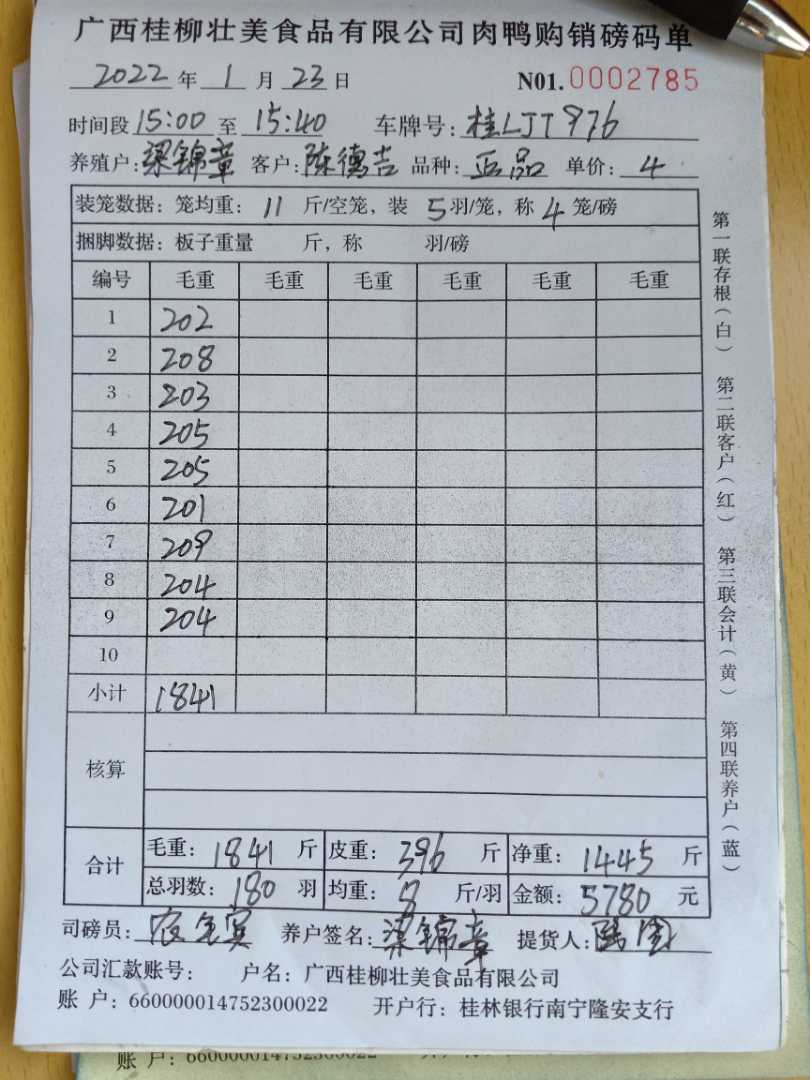 广西桂柳壮美食品有限公司肉鸭购销磅码单
2022年1月23日 N01.0002785
时间段15:00至15:40 车牌号:桂LJT976
养殖户:梁锦章 客户:陈德吉 品种:正品 单价:4
装笼数据:笼均重:11斤/空笼,装5羽/笼,称4笼/磅
捆脚数据:板子重量 斤,称 羽/磅
编号 毛重 毛重 毛重 毛重 毛重 毛重
1 202
2 208
3 203
4 205
5 205
6 201
7 209
8 204
9 204
10
小计 1841
核算
合计 毛重:1841斤 皮重:396斤 净重:1445斤
总羽数:180羽 均重:8斤/羽 金额:5780元
司磅员: 养户签名:梁锦章 提货人:
公司汇款账号: 户名:广西桂柳壮美食品有限公司
账 户:660000014752300022 开户行:桂林银行南宁隆安支行
第一联存根(白) 第二联客户(红) 第三联会计(黄) 第四联养户(蓝)
账 户:660000014752300022